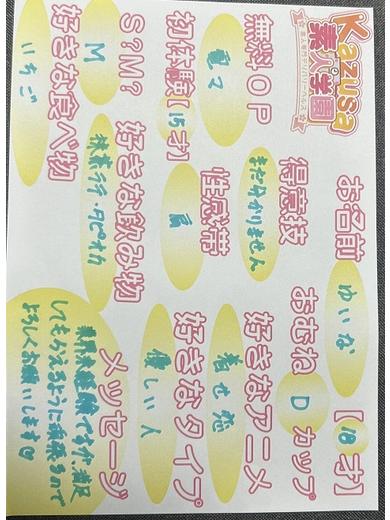 Kazusa
素人学園
お名前 ゆいな 【18才】
おむね D カップ
得意技 まだ分かりません
好きなアニメ 着せ恋
無料OP 電マ
初体験【15才】
性感帯
好きなタイプ 優しい人
S?M? M
好きな飲み物 抹茶ラテ・タピオカ
好きな食べ物 いちご
メッセージ
業界未経験ですが、満足
してもらえるように頑張るので
よろしくお願いします♡